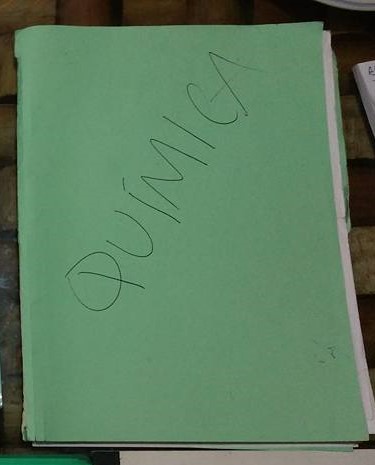 QUÍMICA